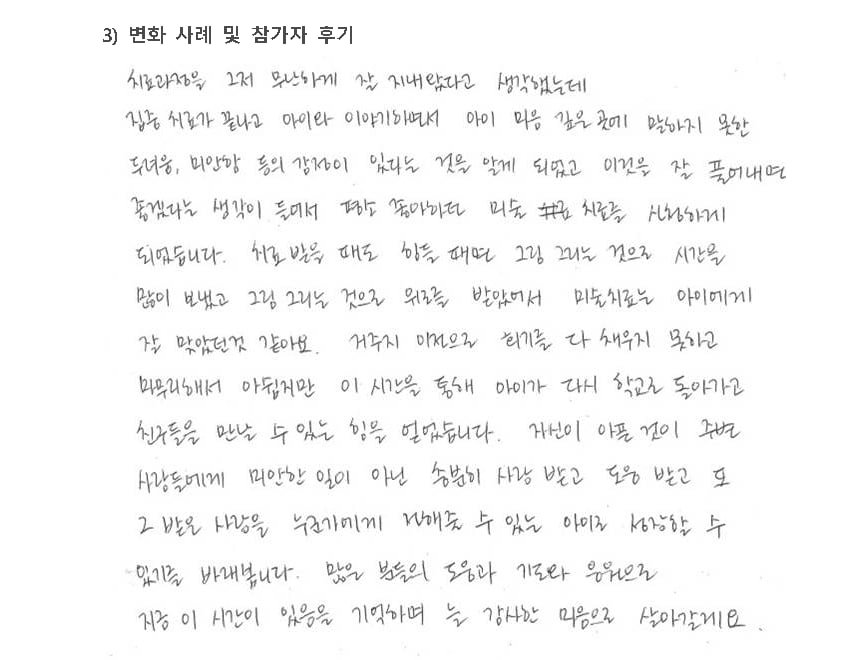 3) 변화 사례 및 참가자 후기
치료과정을 그저 무난하게 잘 지내왔다고 생각했는데
집중 치료가 끝나고 아이와 이야기하면서 아이 마음 깊은 곳에 말하지 못한
두려움, 미안함 등의 감정이 있다는 것을 알게 되었고 이것을 잘 풀어내면
좋겠다는 생각이 들어서 평소 좋아하던 미술 치료를 신청하게
되었습니다. 치료 받을 때도 힘들 때면 그림 그리는 것으로 시간을
많이 보냈고 그림 그리는 것으로 위로를 받았어서 미술치료는 아이에게
잘 맞았던것 같아요. 거주지 이전으로 회기를 다 채우지 못하고
마무리해서 아쉽지만 이 시간을 통해 아이가 다시 학교로 돌아가고
친구들을 만날 수 있는 힘을 얻었습니다. 자신이 아픈 것이 주변
사람들에게 미안한 일이 아닌 충분히 사랑 받고 도움 받고 또
그 받은 사랑을 누군가에게 전해줄 수 있는 아이로 성장할 수
있기를 바래봅니다. 많은 분들의 도움과 기도와 응원으로
지금 이 시간이 있음을 기억하며 늘 감사한 마음으로 살아갈게요.